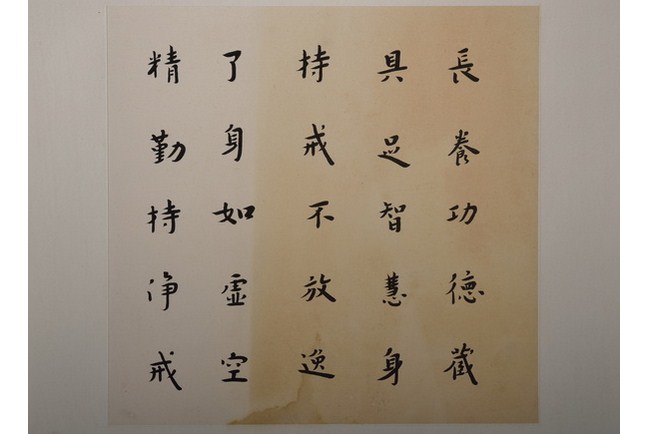 長養功德藏
具足智慧身
持戒不放逸
了身如虛空
精勤持淨戒